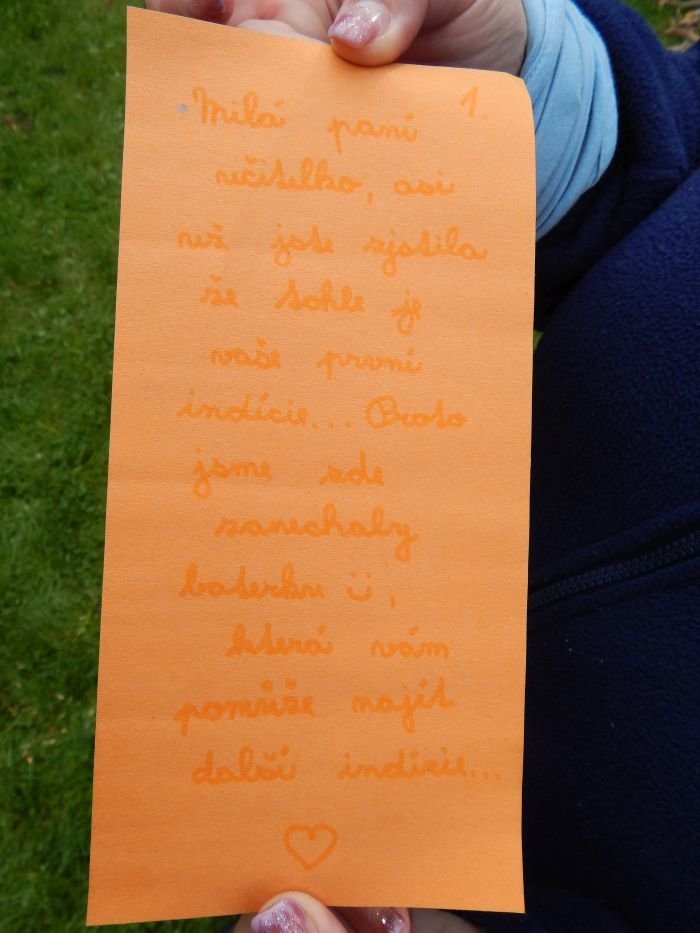 1.
Milá paní
učitelko, asi
už jste zjstila
že tohle je
vaše první
indície... Proto
jsme zde
zanechaly
baterku ☺,
která vám
pomůže najít
další indície...
♡